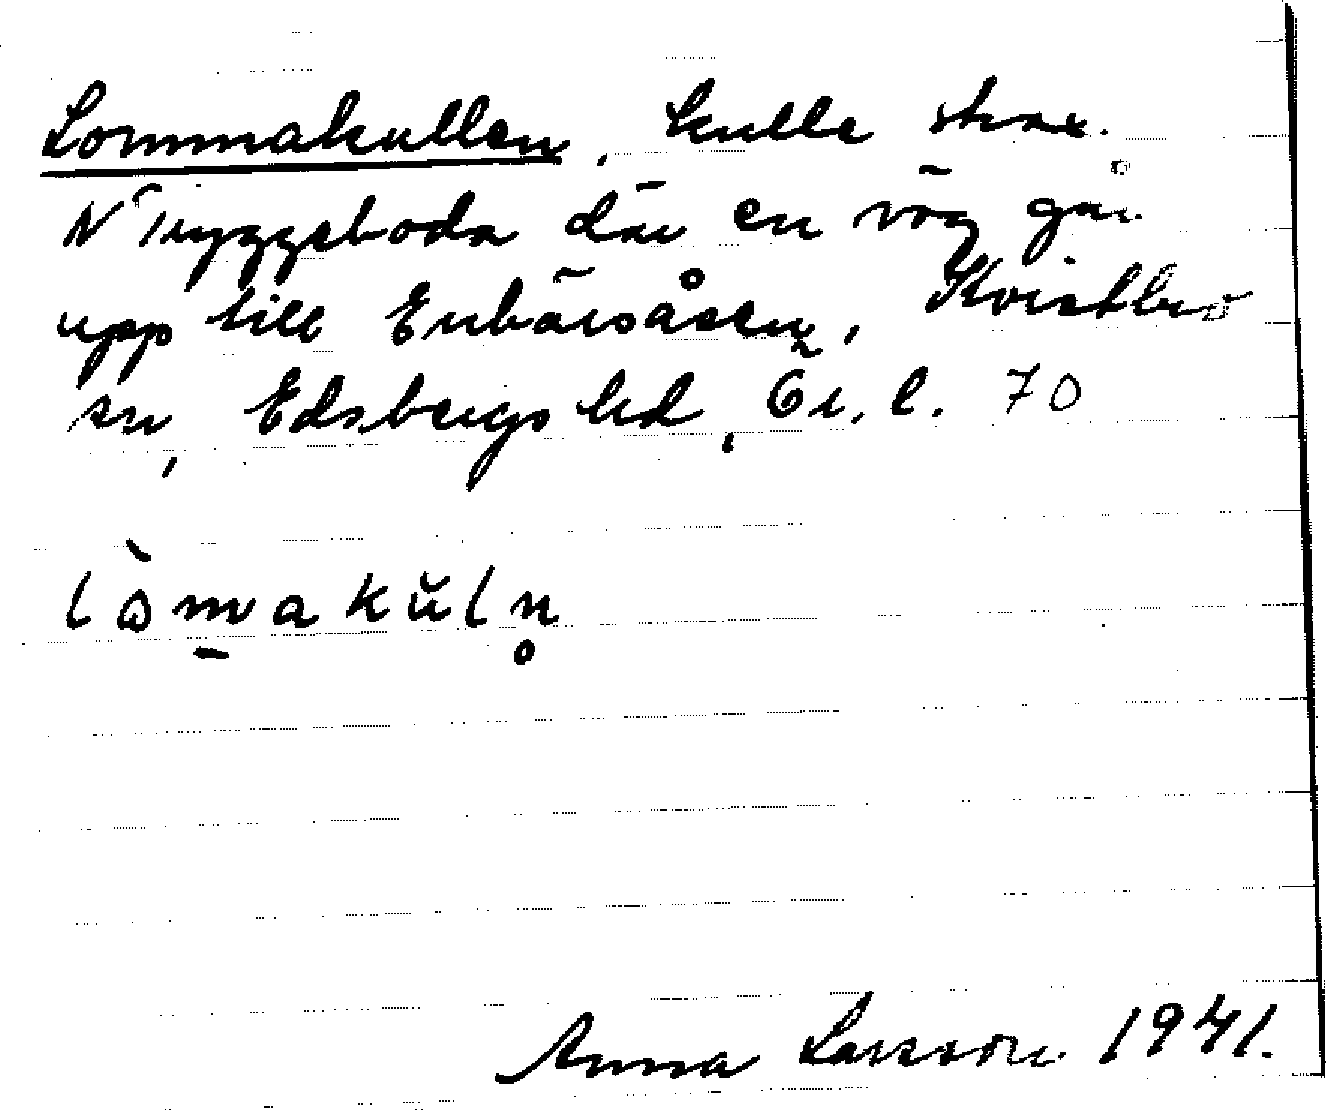 Lommakullen, kulle strax
N Tryggeboda där en väg går
upp till Enbärsåsen, Kvistbro
sn, Edsbergs hd, Ör. l. 70
lòmakŭln̥
Anna Larsson 1941.